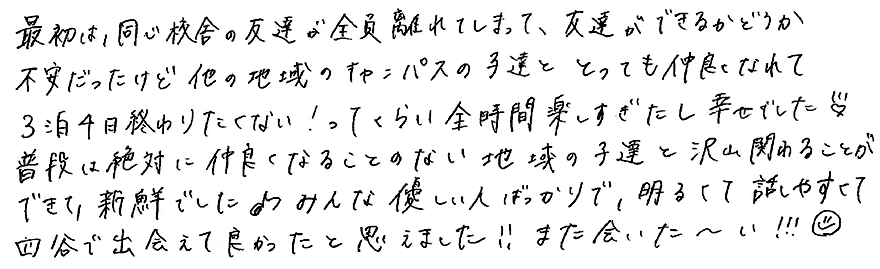 最初は、同じ校舎の友達が全員離れてしまって、友達ができるかどうか
不安だったけど他の地域のキャンパスの子達ととっても仲良くなれて
3泊4日終わりたくない！ってくらい全時間楽しすぎたし幸せでした
普段は絶対に仲良くなることのない地域の子達と沢山関わることが
できて、新鮮でした みんな優しい人ばっかりで、明るくて話しやすくて
四谷で出会えて良かったと思えました!! また会いた〜い!!!